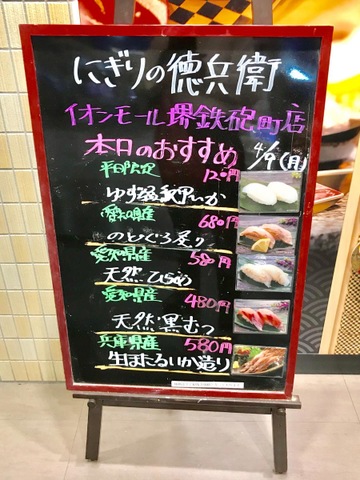 にぎりの徳兵衛
イオンモール堺鉄砲町店
本日のおすすめ 4/9(月)
平日限定 120円
ゆず塩 いか
愛知県産 680円
のどぐろ造り
愛知県産 580円
天然ひらめ
愛知県産 480円
天然黒むつ
兵庫県産 580円
生ほたるいか造り